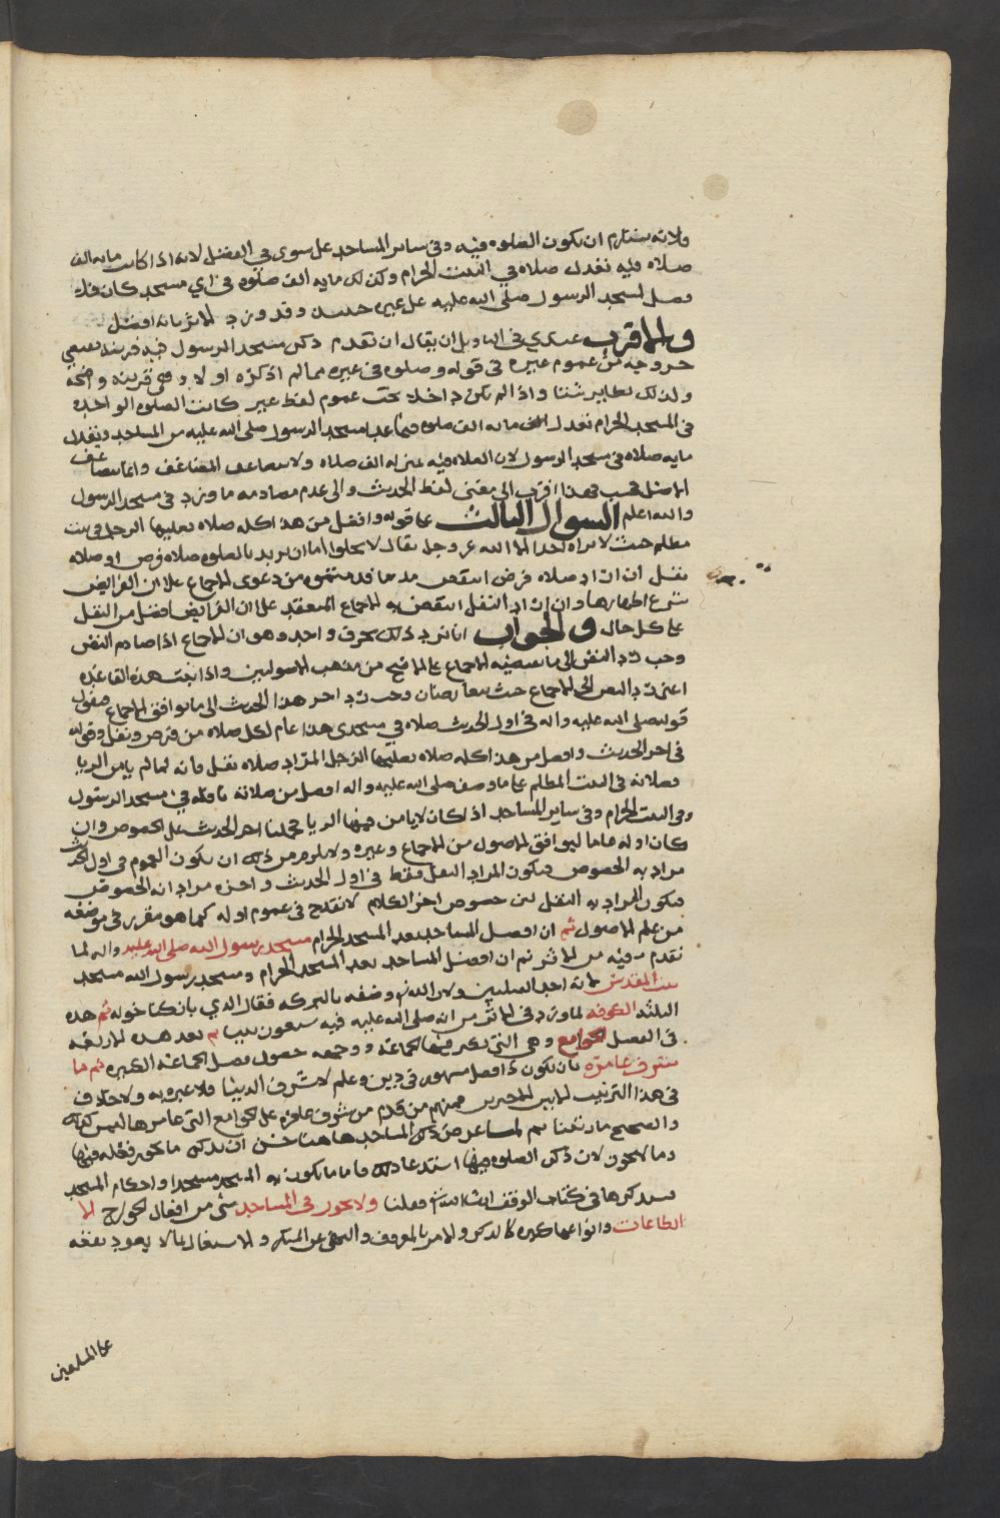 ولانه يستلزم ان تكون الصلوه فيه وفي ساير المساجد على سوى في الفضل لانه اذا كانت مايه الف
صلاه فيه تعدل صلاه في البيت الحرام وكذلك مايه الف صلوه في اي مسجد كان فلا
فضل لمسجد الرسول صلى الله عليه على غيره حينيذ وقد ورد الاثر بانه افضل
والاقرب عندي في التاويل ان يقال ان تقدم ذكر مسجد الرسول فيه قرينه تقتضي
خروجه من عموم غيره في قوله وصلوه في غيره مما لم اذكره اولا وهي قرينه واضحه
ولذلك نظاير شتا واذا لم يكن داخلا تحت عموم لفظ غير كانت الصلوه الواحده
في المسجد الحرام تعدل مايه الف صلوه فيما عدا مسجد الرسول صلى الله عليه من المساجد وتعدل
مايه صلاه في مسجد الرسول لان الصلاه فيه بمنزله الف صلاه ولا يضاعف المضاعف وانما يضاعف
الاصل فحسب فهذا اقرب الى مقتضى لفظ الحديث والى عدم مصادمه ما ورد في مسجد الرسول
والله اعلم السوال الثالث عن قوله وافضل من هذا كله صلاه يصليها الرجل في بيت
مظلم حيث لا يراه احد الا الله عز وجل يقال لا يخلوا اما ان يريد بالصلوه صلاه فرض او صلاه
نفل ان اراد صلاه فرض انتقض بما قدمتموه من دعوى الاجماع على ان الفرايض
شرع اظهارها وان اراد النفل انتقض بالاجماع المنعقد على ان الفرايض افضل من النفل
على كل حال والجواب انا نرد ذلك بحرف واحد وهو ان الاجماع اذا صادم النص
وجب رد النص الى ما يقتضيه الاجماع على الاصح من مذهب الاصوليين واذا ثبتت هذه القاعده
اعني رد النص الى الاجماع حيث يتعارضان وجب رد اخر هذا الحديث الى ما يوافق الاجماع فنقول
قوله صلى الله عليه واله في اول الحديث صلاه في مسجدي هذا عام لكل صلاه من فرض ونفل وقوله
في اخر الحديث وافضل من هذا كله صلاه يصليها الرجل المراد صلاه نفل فانه لما لم يامن الريا
فصلاته في البيت المظلم على ما وصف صلى الله عليه واله افضل من صلاته نافله في مسجد الرسول
وفي البيت الحرام وفي ساير المساجد اذ كان لا يامن فيها الريا فحملنا اخر الحديث على الخصوص وان
كان اوله عاما ليوافق الاصول من الاجماع وغيره ولا يلزم من ذلك ان يكون العموم في اول الحديث
مراد به الخصوص فيكون المراد النفل فقط في اول الحديث واخره مراد انه الخصوص
فيكون المراد به النفل لان خصوص اخر الكلام لا يقدح في عموم اوله كما هو مقرر في موضعه
من علم الاصول ثم ان افضل المساجد بعد المسجد الحرام مسجد رسول الله صلى الله عليه واله لما
تقدم فيه من الاثر ثم ان افضل المساجد بعد المسجد الحرام ومسجد رسول الله مسجد
بيت المقدس لانه احد القبلتين ولان الله وصفه بالبركه فقال الذي باركنا حوله ثم هذه
الثلثه الكوفه لما ورد في الاثر من انه صلى الله عليه فيه سبعون نبيا ثم بعد هذه الاربعه
في الفضل الجوامع وهي التي تكثر فيها الجماعه ووجهه حصول فضل الجماعه الكبيره ثم ما
شرف عامره بان يكون ذا فضل مشهور في دين وعلم لا شرف الدنيا فلا عبره به ولا خلاف
في هذا الترتيب الا بين الاخيرين فمنهم من قدم من شرف عامره على الجوامع التي عامرها ليس كذلك
والصحيح ما رتبنا ثم لما عرض ذكر المساجد ها هنا حسن ان نذكر ما يجوز فعله فيها
وما لا يجوز لان ذكر الصلوه فيها استدعا ذلك فاما ما يكون به المسجد مسجدا واحكام المسجد
فسنذكرها في كتاب الوقف ان شا الله فقلنا ولا يجوز في المساجد شي من افعال الجوارح الا
الطاعات وانواعها كثيره كالذكر والامر بالمعروف والنهي عن المنكر والاشتغال بما لا يعود نفعه
على المسلمين